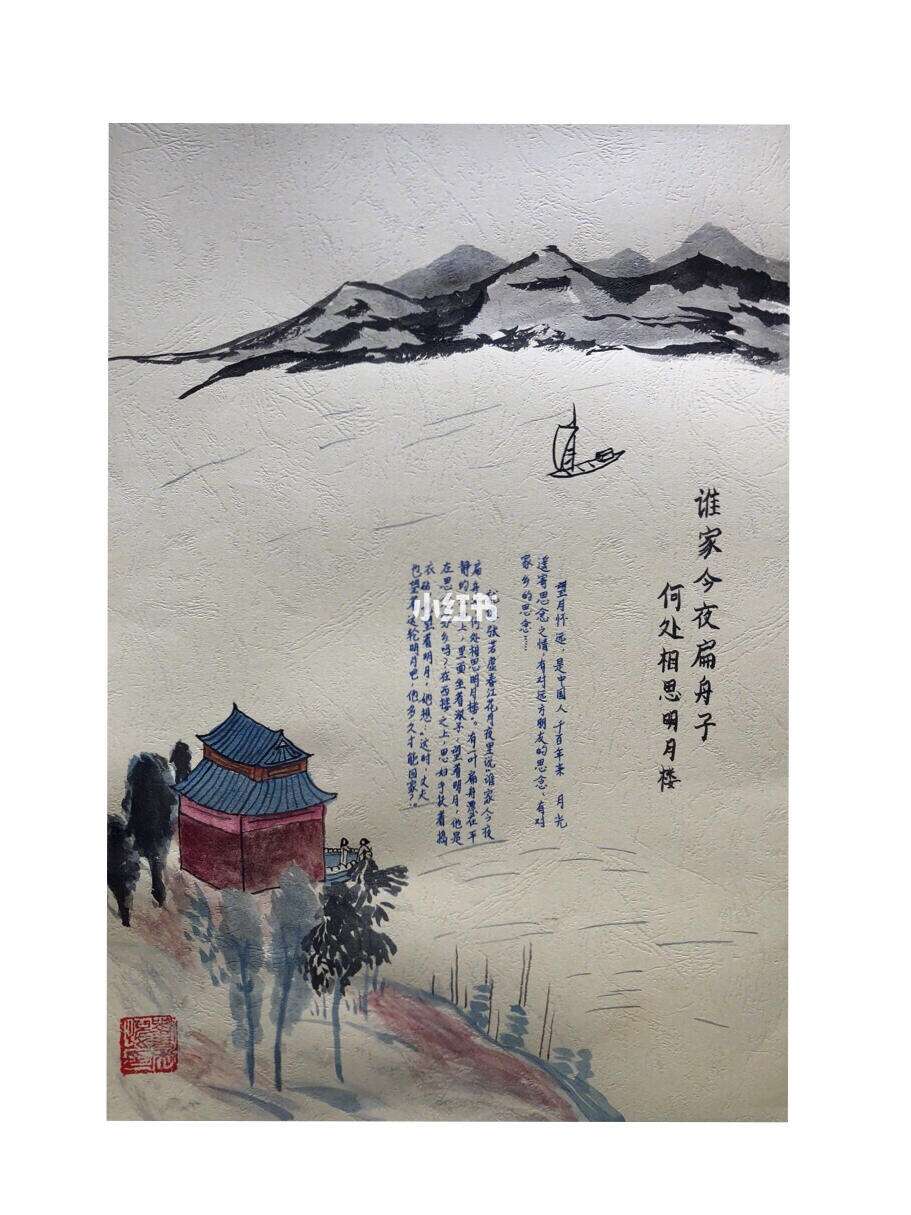 谁家今夜扁舟子
何处相思明月楼
望月怀远，是中国人千百年来 月光
遥寄思念之情，有对远方朋友的思念，有对
家乡的思念……
张若虚春江花月夜里说“谁家今夜
扁舟 何处相思明月楼”。有一叶扁舟漂在平
静的 上，里面坐着游子，望着明月，他是
在思 乡吗？在西楼之上，思妇手扶着捣
衣 望着明月，她想：“这时，丈夫
也望着这轮明月吧，他多久才能回家？”
小红书